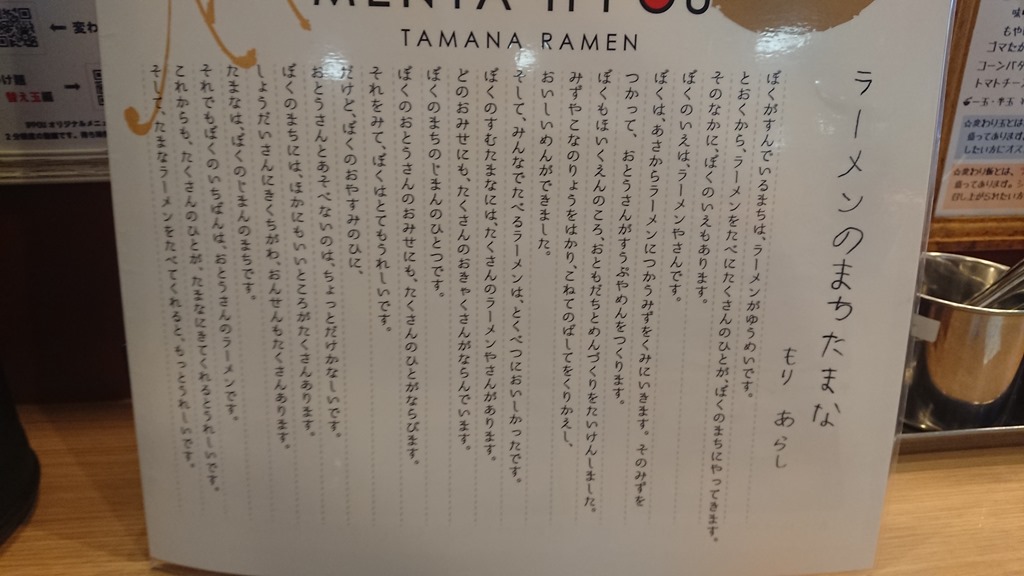 MENYA
TAMANA RAMEN
ラーメンのまちたまな
もり あらし
ぼくがすんでいるまちは、ラーメンがゆうめいです。
とおくから、ラーメンをたべにたくさんのひとが、ぼくのまちにやってきます。
そのなかに、ぼくのいえもあります。
ぼくのいえは、ラーメンやさんです。
ぼくは、あさからラーメンにつかうみずをくみにいきます。そのみずを
つかって、おとうさんがすうぷやめんをつくります。
ぼくもほいくえんのころ、おともだちとめんづくりをたいけんしました。
みずやこなのりょうをはかり、こねてのばしてをくりかえし、
おいしいめんができました。
そして、みんなでたべるラーメンは、とくべつにおいしかったです。
ぼくのすむたまなにはたくさんのラーメンやさんがあります。
どのおみせにも、たくさんのおきゃくさんがならんでいます。
ぼくのまちのじまんのひとつです。
ぼくのおとうさんのおみせにも、たくさんのひとがならびます。
それをみて、ぼくはとてもうれしいです。
だけど、ぼくのおやすみのひに、
おとうさんとあそべないのは、ちょっとだけかなしいです。
ぼくのまちには、ほかにもいいところがたくさんあります。
しょうだいさんにきくちがわ、おんせんもたくさんあります。
たまなは、ぼくのじまんのまちです。
それでもぼくのいちばんは、おとうさんのラーメンです。
これからも、たくさんのひとが、たまなにきてくれるとうれしいです。
そして、たまなラーメンをたべてくれると、もっとうれしいです。
← 変わ
替え玉編
もやし
コーンバタ
トマトチー